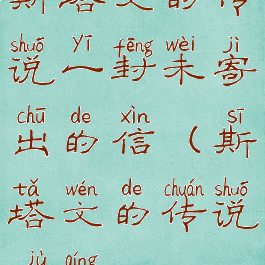 斯塔文的传
shuō yī fēng wèi jì
说一封未寄
chū de xìn sī
出的信(斯
tǎ wén de chuán shuō
塔文的传说
jù qíng